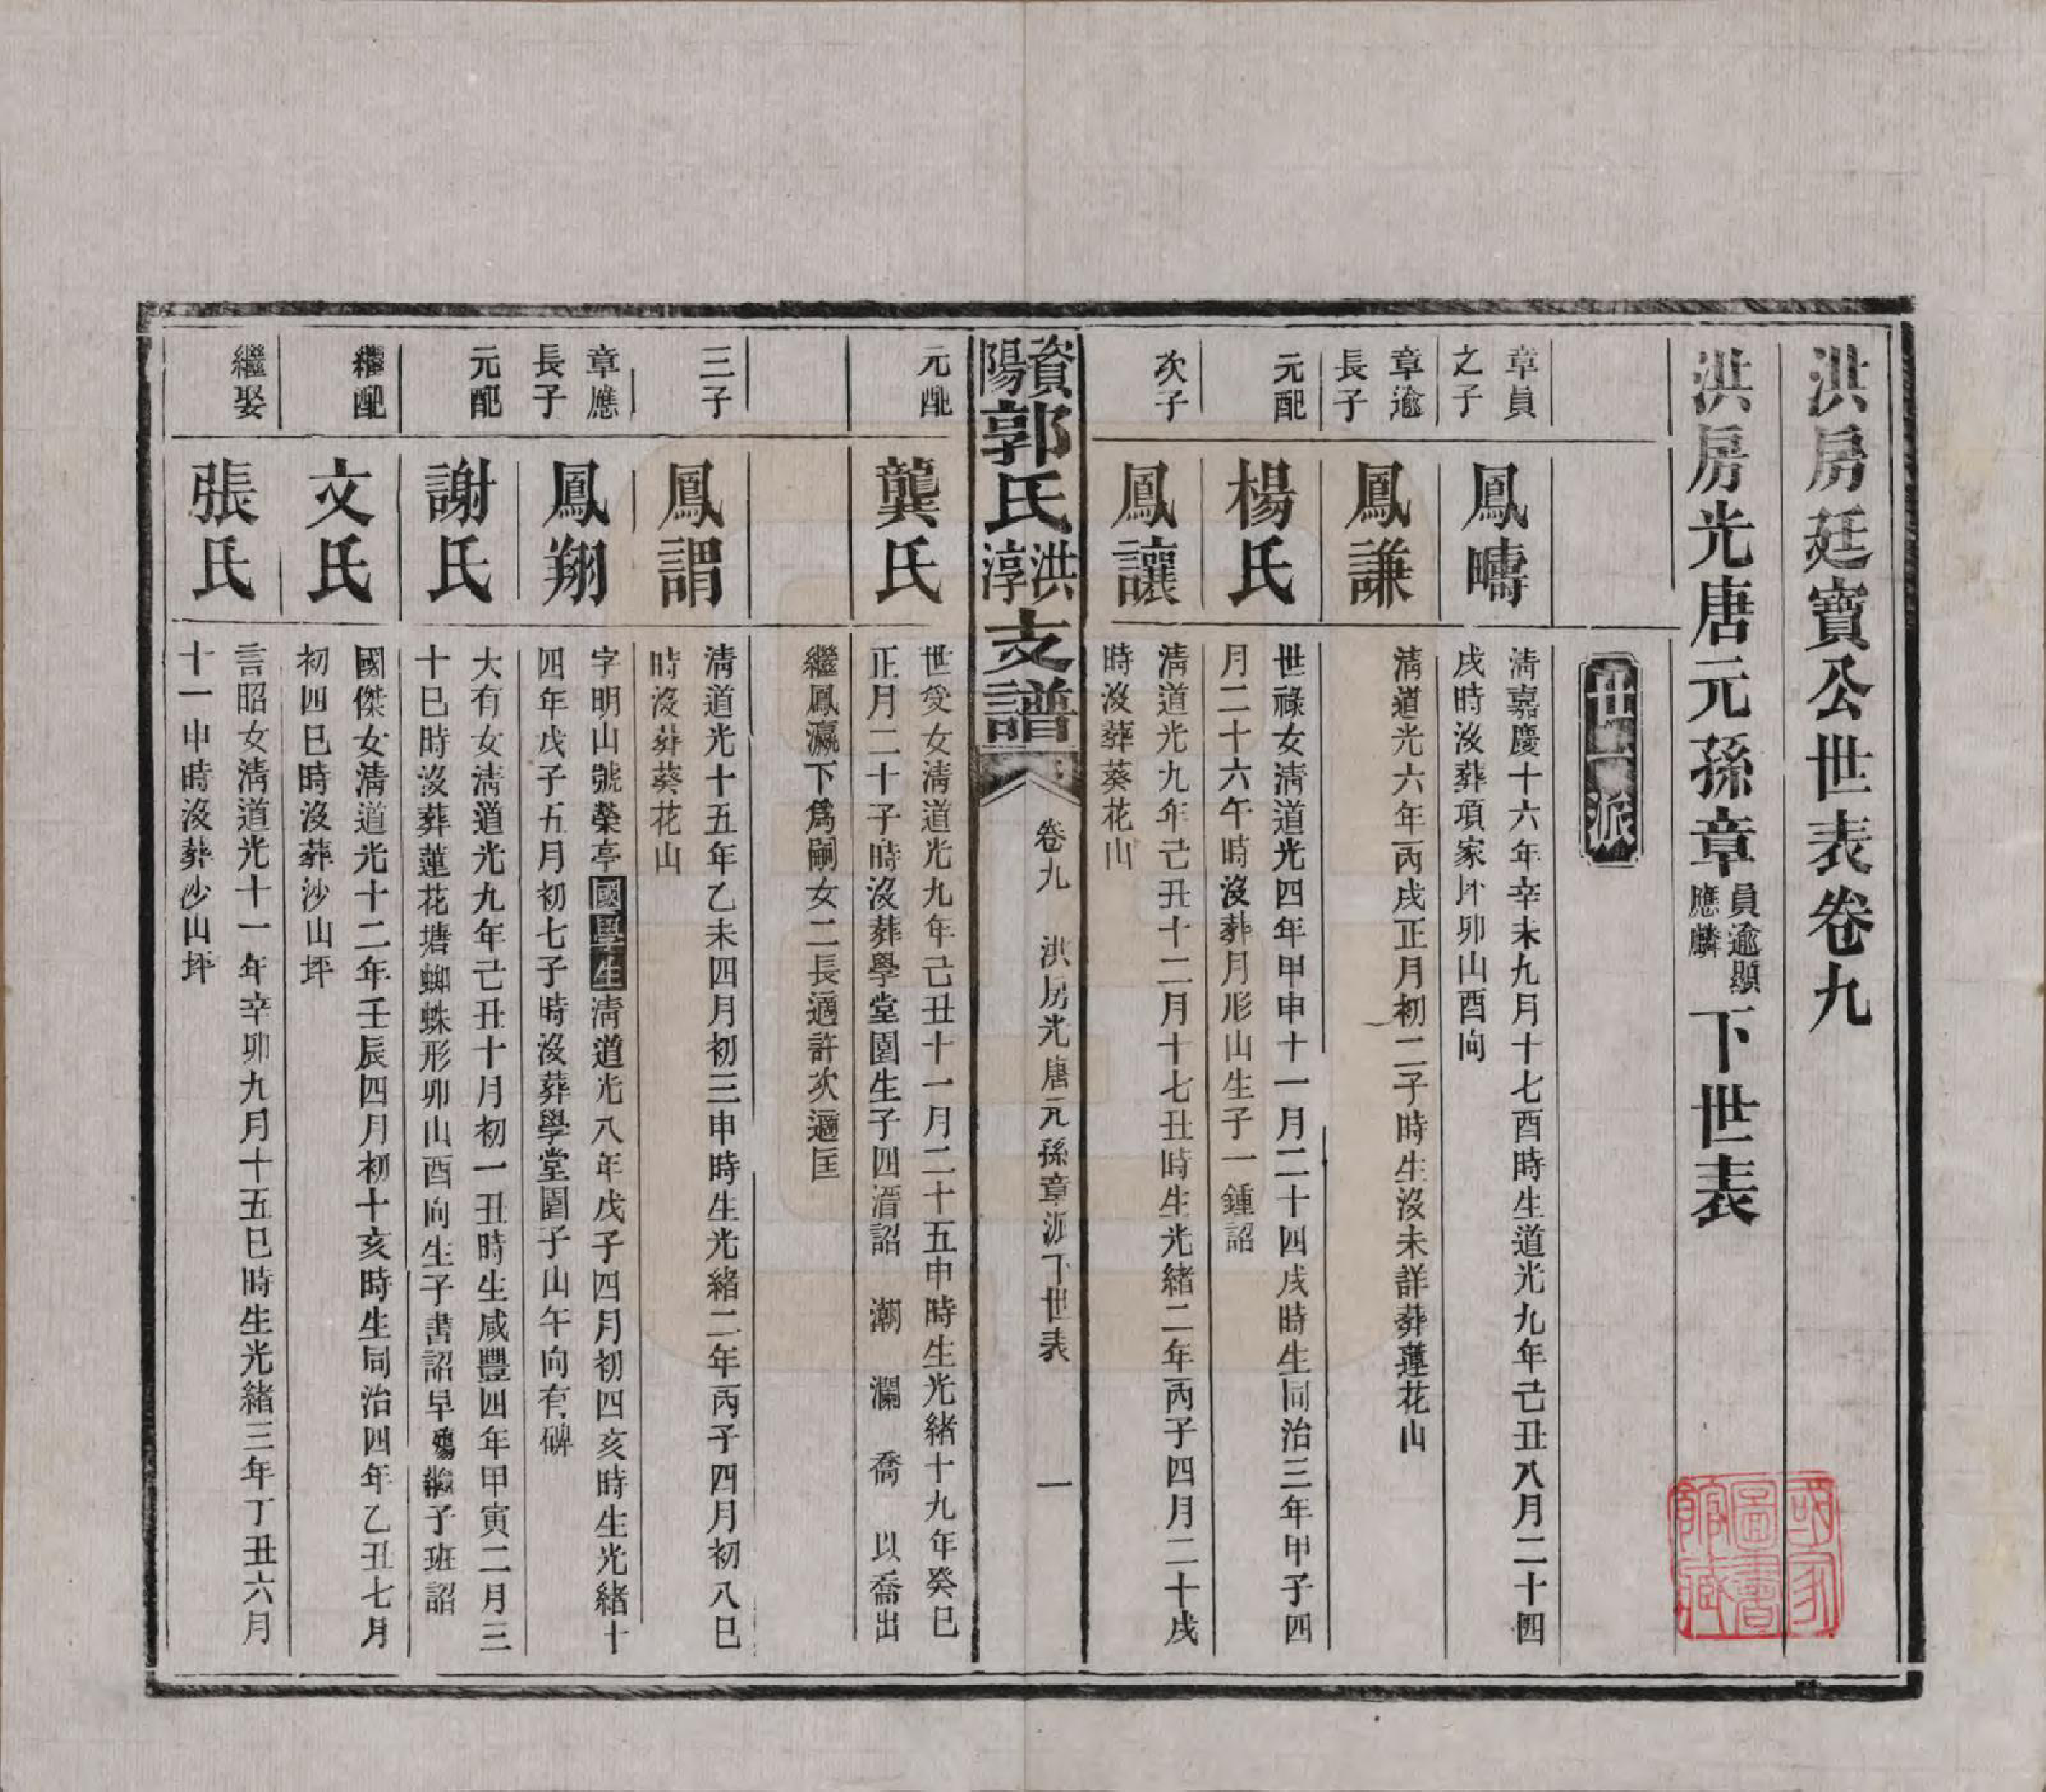 洪房廷寶公世表卷九
洪房光唐元孫章員逾顯應麟下世表
世一派
章員之子
鳳疇
清嘉慶十六年辛未九月十七酉時生道光九年己丑八月二十四
戌時沒葬項家坏卯山酉向
章逾長子
鳳謙
清道光六年丙戌正月初二子時生沒未詳葬蓮花山
元配
楊氏
世祿女清道光四年甲申十一月二十四戌時生同治三年甲子四
月二十六午時沒葬月形山生子一鍾詔
次子
鳳讓
清道光九年己丑十二月十七丑時生光緒二年丙子四月二十戌
時沒葬葵花山
資陽郭氏洪淳支譜
卷九 洪房光唐元孫章派下世表 一
元配
龔氏
世受女清道光九年己丑十一月二十五申時生光緒十九年癸巳
正月二十子時沒葬學堂園生子四湑詔 潮 瀾 喬 以喬出
繼鳳瀛下為嗣女二長適許次適匡
三子
鳳謂
清道光十五年乙未四月初三申時生光緒二年丙子四月初八巳
時沒葬葵花山
章應長子
鳳翔
字明山號榮亭國學生清道光八年戊子四月初四亥時生光緒十
四年戊子五月初七子時沒葬學堂園子山午向有碑
元配
謝氏
大有女清道光九年己丑十月初一丑時生咸豐四年甲寅二月三
十巳時沒葬蓮花塘蜘蛛形卯山酉向生子書詔早殤繼子班詔
繼配
文氏
國傑女清道光十二年壬辰四月初十亥時生同治四年乙丑七月
初四巳時沒葬沙山坪
繼娶
張氏
言昭女清道光十一年辛卯九月十五巳時生光緒三年丁丑六月
十一申時沒葬沙山坪
國家圖書館藏